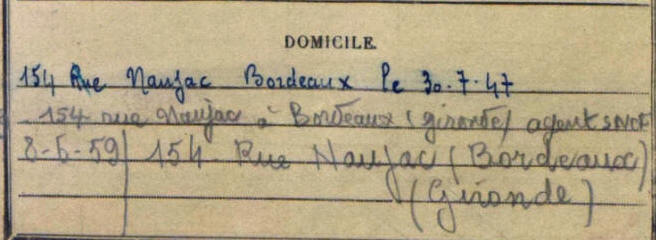 DOMICILE.
154 Rue Naujac Bordeaux le 30.7.47
154 rue Naujac à Bordeaux (gironde) agent SNCF
8-5-59 154 Rue Naujac (Bordeaux)
(Gironde)